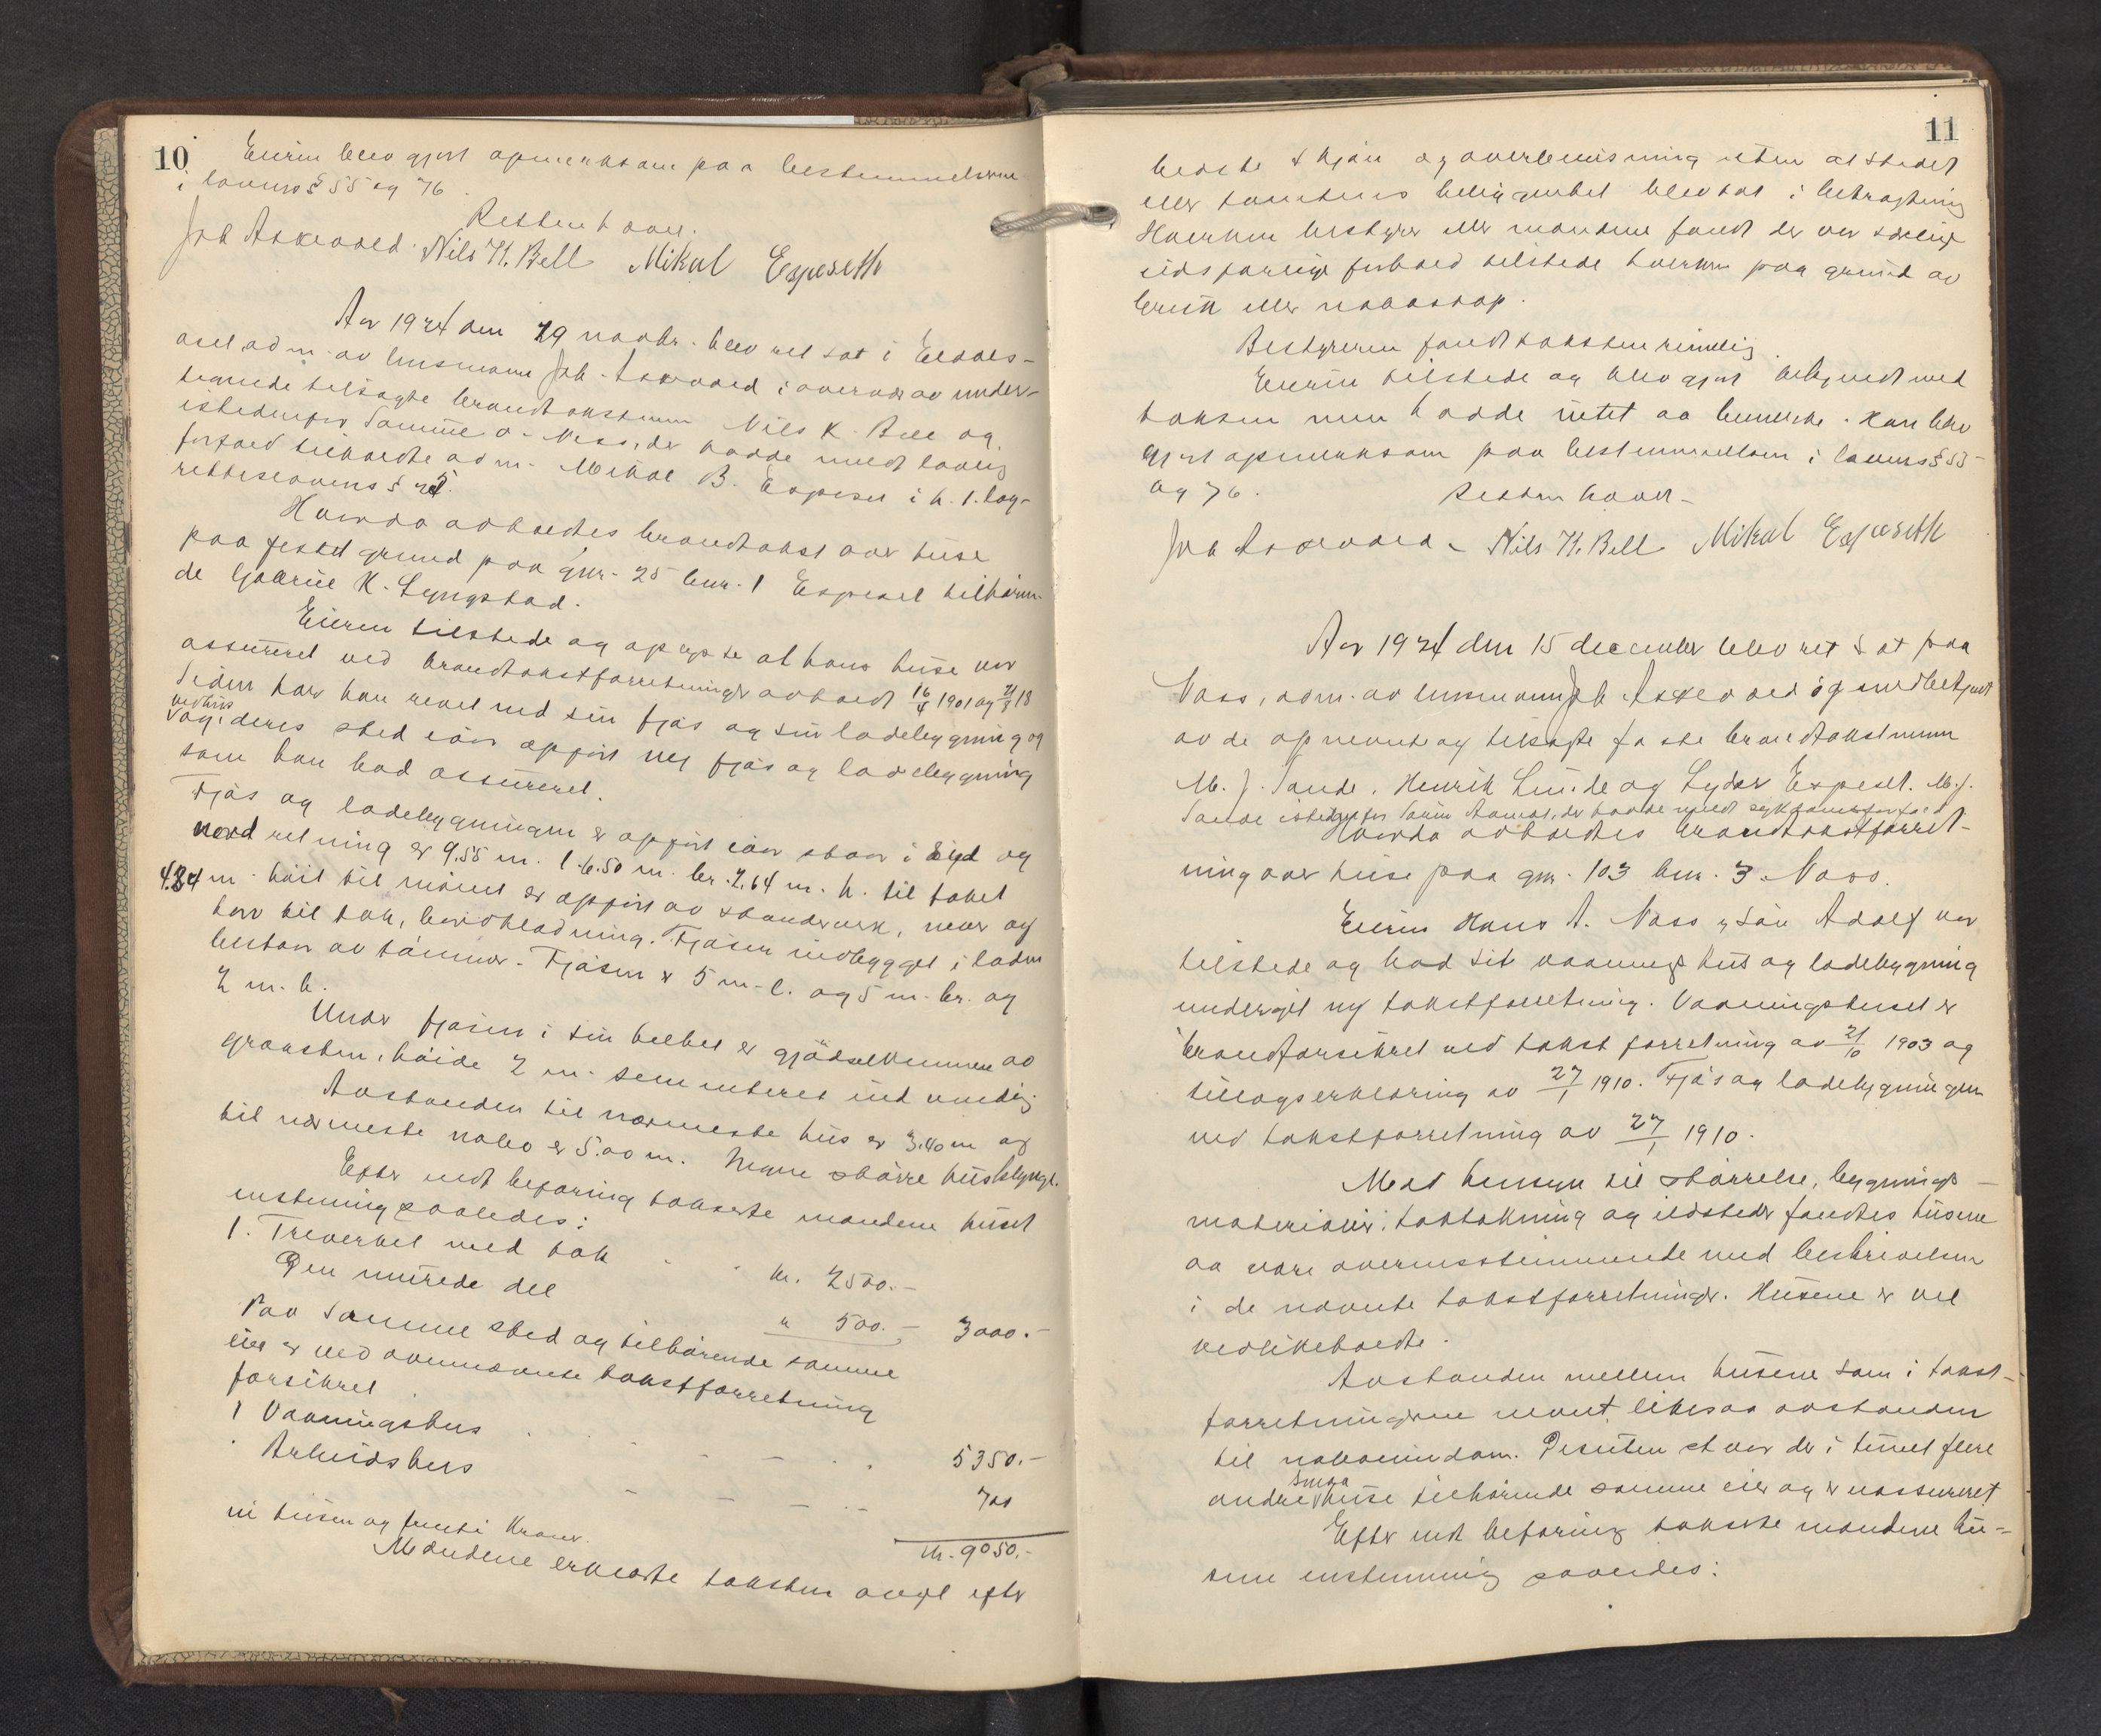 10
Eieren blev gjort opmerksom paa bestemmelserne
i lovens § 55 og 76.
Retten hævet.
Joh Askevold. Nils K. Bell Mikal Espeseth
Aar 1924 den 29 novbr. blev ret sat i Eldals-
oset, adm. av lensmann Joh. Askevold i overvær av under-
tegnede tilsagte brandtakstmenn Nils K. Bell og
istedenfor Samme o. Ness, der hadde meldt lovlig
forfald tilkaldte adm. Mikal B. Espeset i h. t. lag-
rettelovens §
Hvorda avholdtes brandtakst over huse
paa festet grund paa gnr. 25 bnr. 1 Espeset tilhøren-
de Gabriel K. Lyngstad.
Eieren tilstede og oplyste at hans huse var
assureret ved brandtakstforretninger avholdt 16/4 1901 og 21/3 18
Siden har han revet ned sin fjøs og sin ladebygning og
ved hus
og i deres sted iaar opført ny fjøs og ladebygning
som han bad assureret.
Fjøs og ladebygningen er opført iaar staar i syd og
nord retning er 9.55 m. l. 6.50 m. br. 2.64 m. h. til taket
4.84 m. høit til mønet er opført av standverk, never og
torv til tak, bordkledning. Fjøsen indbygget i laden
bestaar av tømmer. Fjøsen er 5 m. l. og 5 m. br. og
2 m. h.
Under fjøsen i sin helhet er gjødselkummen av
graasten, høide 2 m. som muret ind vendig
Avstanden til nærmeste hus er 3.40 m og
til nærmeste nabo er 5.00 m. Ingen større husklynge.
Efter endt befaring takserte mændene huset
enstemmig saaledes:
1. Treverket med tak . . kr. 2500.-
Den murede del " 500.- 3000.-
Paa samme sted og tilhørende samme
eier er ved ovennævnte takstforretning
forsikret
1 Vaaningshus . . - - - . . 5350.-
" Arbeidshus - - - . . - 700
kr. 9050.-
ni tusen og femti Kroner.
Mændene erklærte taksten avgit efter
11
bedste skjøn og overbevisning uten at stedet
eller tomtens beliggenhet blev tat i betragtning
Hverken bestyrer eller mændene fandt der var særlig
ildsfarlige forhold tilstede hverken paa grund av
bruk eller naboskap.
Bestyreren fandt taksten rimelig.
Eieren tilstede og blev gjort bekjendt med
taksten men hadde intet aa bemerke. Han blev
gjort opmerksom paa bestemmelsen i lovens § 55
og 76.
Retten hævet -
Joh Askevold - Nils K. Bell Mikal Espeseth
Aar 1924 den 15 december blev ret sat paa
Vass, adm. av lensmann Joh Askevold og medbetjent
av de opnevnte og tilsagte faste brandtakstmenn
M. J. Sande, Henrik Linde og Lyder Espeset. M. J.
Sande istedenfor Søren Aamot, der hadde meldt sykdomsforfald
Hvorda avholdtes brandtakstforret-
ning over huse paa gnr. 103 bnr. 3 Vass.
Eieren Hans A. Vass, søn Adolf var
tilstede og bad sit vaaningshus og ladebygning
undergit ny takstforretning. Vaaningshuset er
brandforsikret ved takst forretning av 21/10 1903 og
tillægserklæring av 27/1 1910. Fjøs og ladebygningen
ved takstforretning av 27/1 1910.
Med hensyn til størrelse, bygnings-
materialier, taktækning og ildsteder fandtes husene
aa være overensstemmende med beskrivelsen
i de nævnte takstforretninger. Husene er vel
vedlikeholdte.
Avstanden mellem husene som i takst-
forretningerne nevnt, likesaa avstanden
til naboeiendom. Desuten staar der i tunet flere
smaa
andre huse tilhørende samme eier og er uassureret
Efter endt befaring takserte mændene hu-
sene enstemmig saaledes: